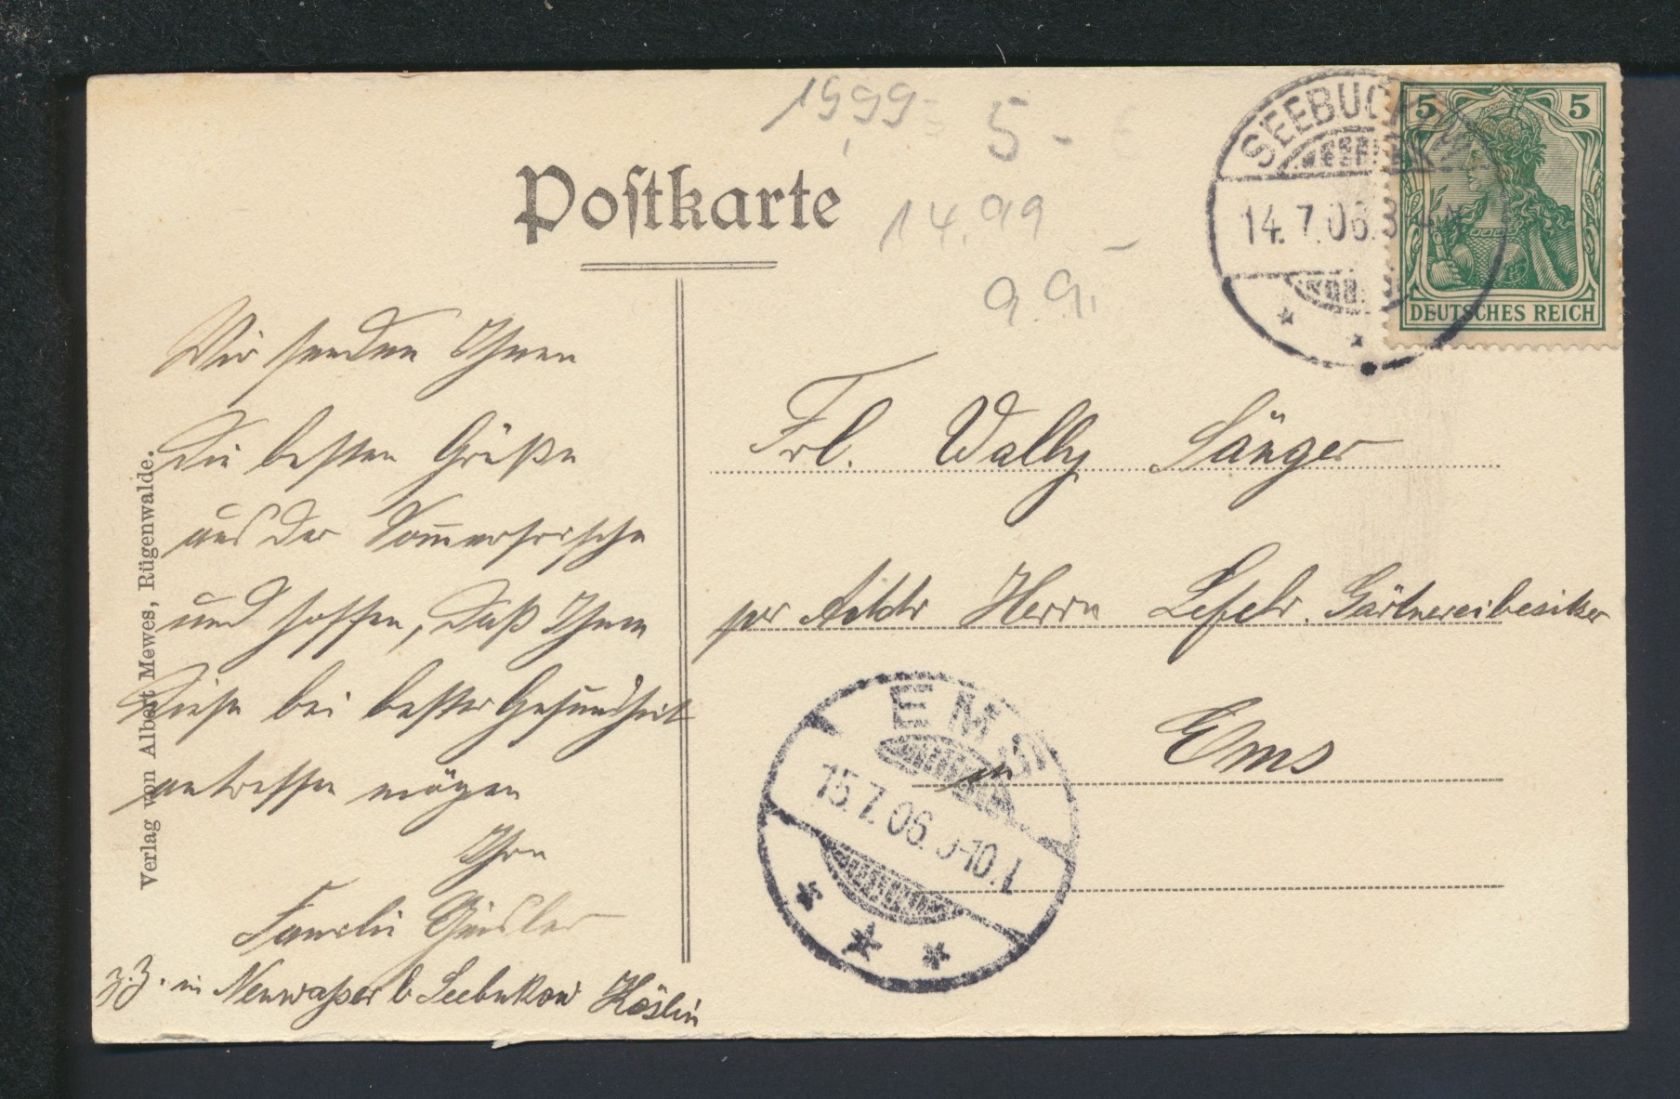 19,99
5 -
Postkarte
14.99 -
9.9
SEEBUCK
14.7.06.3
5 5
DEUTSCHES REICH
Wir senden Ihnen
die besten Grüße
aus der Sommerfrische
und hoffen, daß Ihnen
diese bei bester Gesundheit
antreffen mögen
Ihre
Familie
z.Z. in Neuwasser b. Seebukow Köslin
Verlag von Albert Mewes, Rügenwalde.
Frl. Wally Sänger
per Addr Herrn Gärtnereibesitzer
in Ems
EMS
15.7.06. -10.